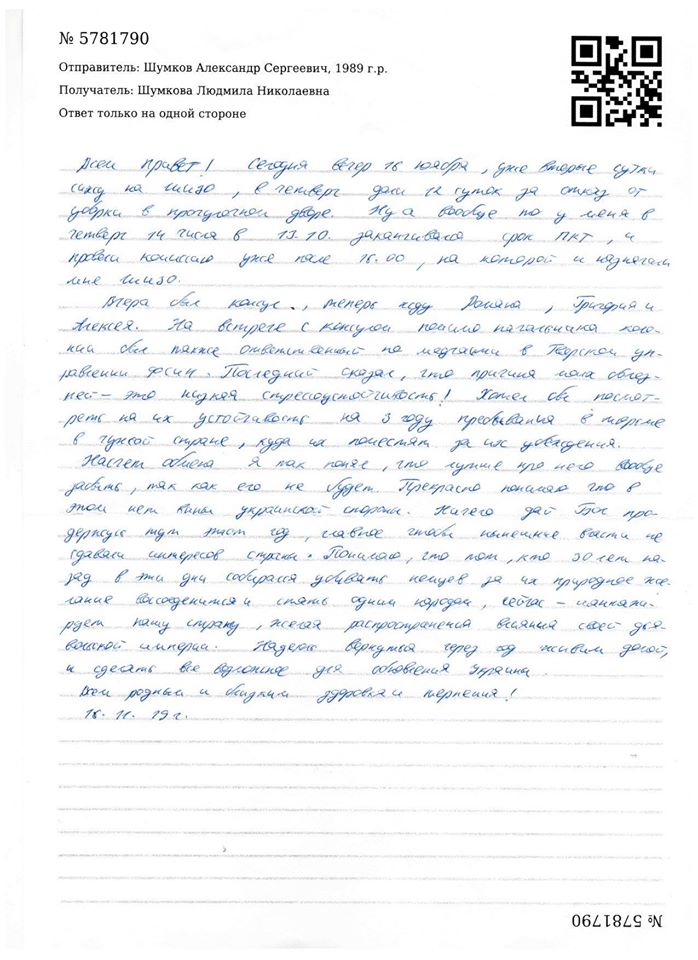 № 5781790
Отправитель: Шумков Александр Сергеевич, 1989 г.р.
Получатель: Шумкова Людмила Николаевна
Ответ только на одной стороне
Всем привет! Сегодня вечер 16 ноября, уже вторые сутки
сижу на ШИЗО, в четверг дали 12 суток за отказ от
уборки в прогулочном дворе. Ну а вообще то у меня в
четверг 14 числа в 13.10. заканчивался срок ПКТ, и
провели комиссию уже после 16.00, на которой и назначили
мне ШИЗО.
Вчера был консул, теперь жду Романа, Григория и
Алексея. На встрече с консулом помимо начальника коло-
нии был также ответственный по медчасти в Тверском уп-
равлении ФСИН. Последний сказал, что причина моих болез-
ней - это низкая стрессоустойчивость! Хотел бы посмот-
реть на их устойчивость на 3 году пребывания в тюрьме
в чужой стране, куда их поместят за их убеждения.
Насчет обмена я так понял, что лучше про него вообще
забыть, так как его не будет. Прекрасно понимаю что в
этом нет вины украинской стороны. Ничего дай Бог про-
держусь тут этот год, главное чтобы нынешние власти не
сдавали интересов страны. Понимаю, что тот, кто 30 лет на-
зад в эти дни собирался убивать немцев за их природное же-
лание воссоединится и стать одним народом, сейчас -
рует нашу страну, желая распространения влияния своей дья-
вольской империи. Надеюсь вернуться через год живым домой,
и сделать все возможное для обновления Украины.
Всем родным и близким здоровья и терпения!
16.11.19 г.
№ 5781790